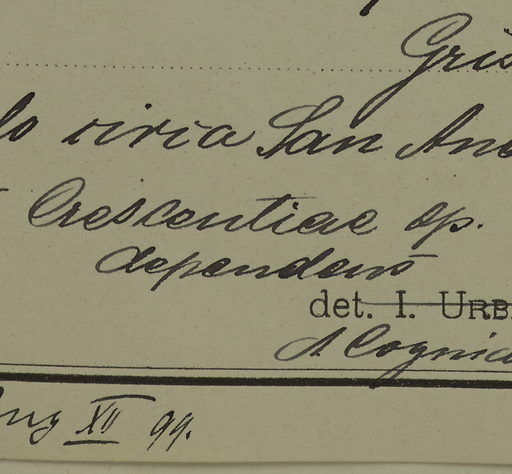 Gris
lo circa San And
Crescentiae sp.
dependens
det. I. URB
A Cognia
Aug XII 99.